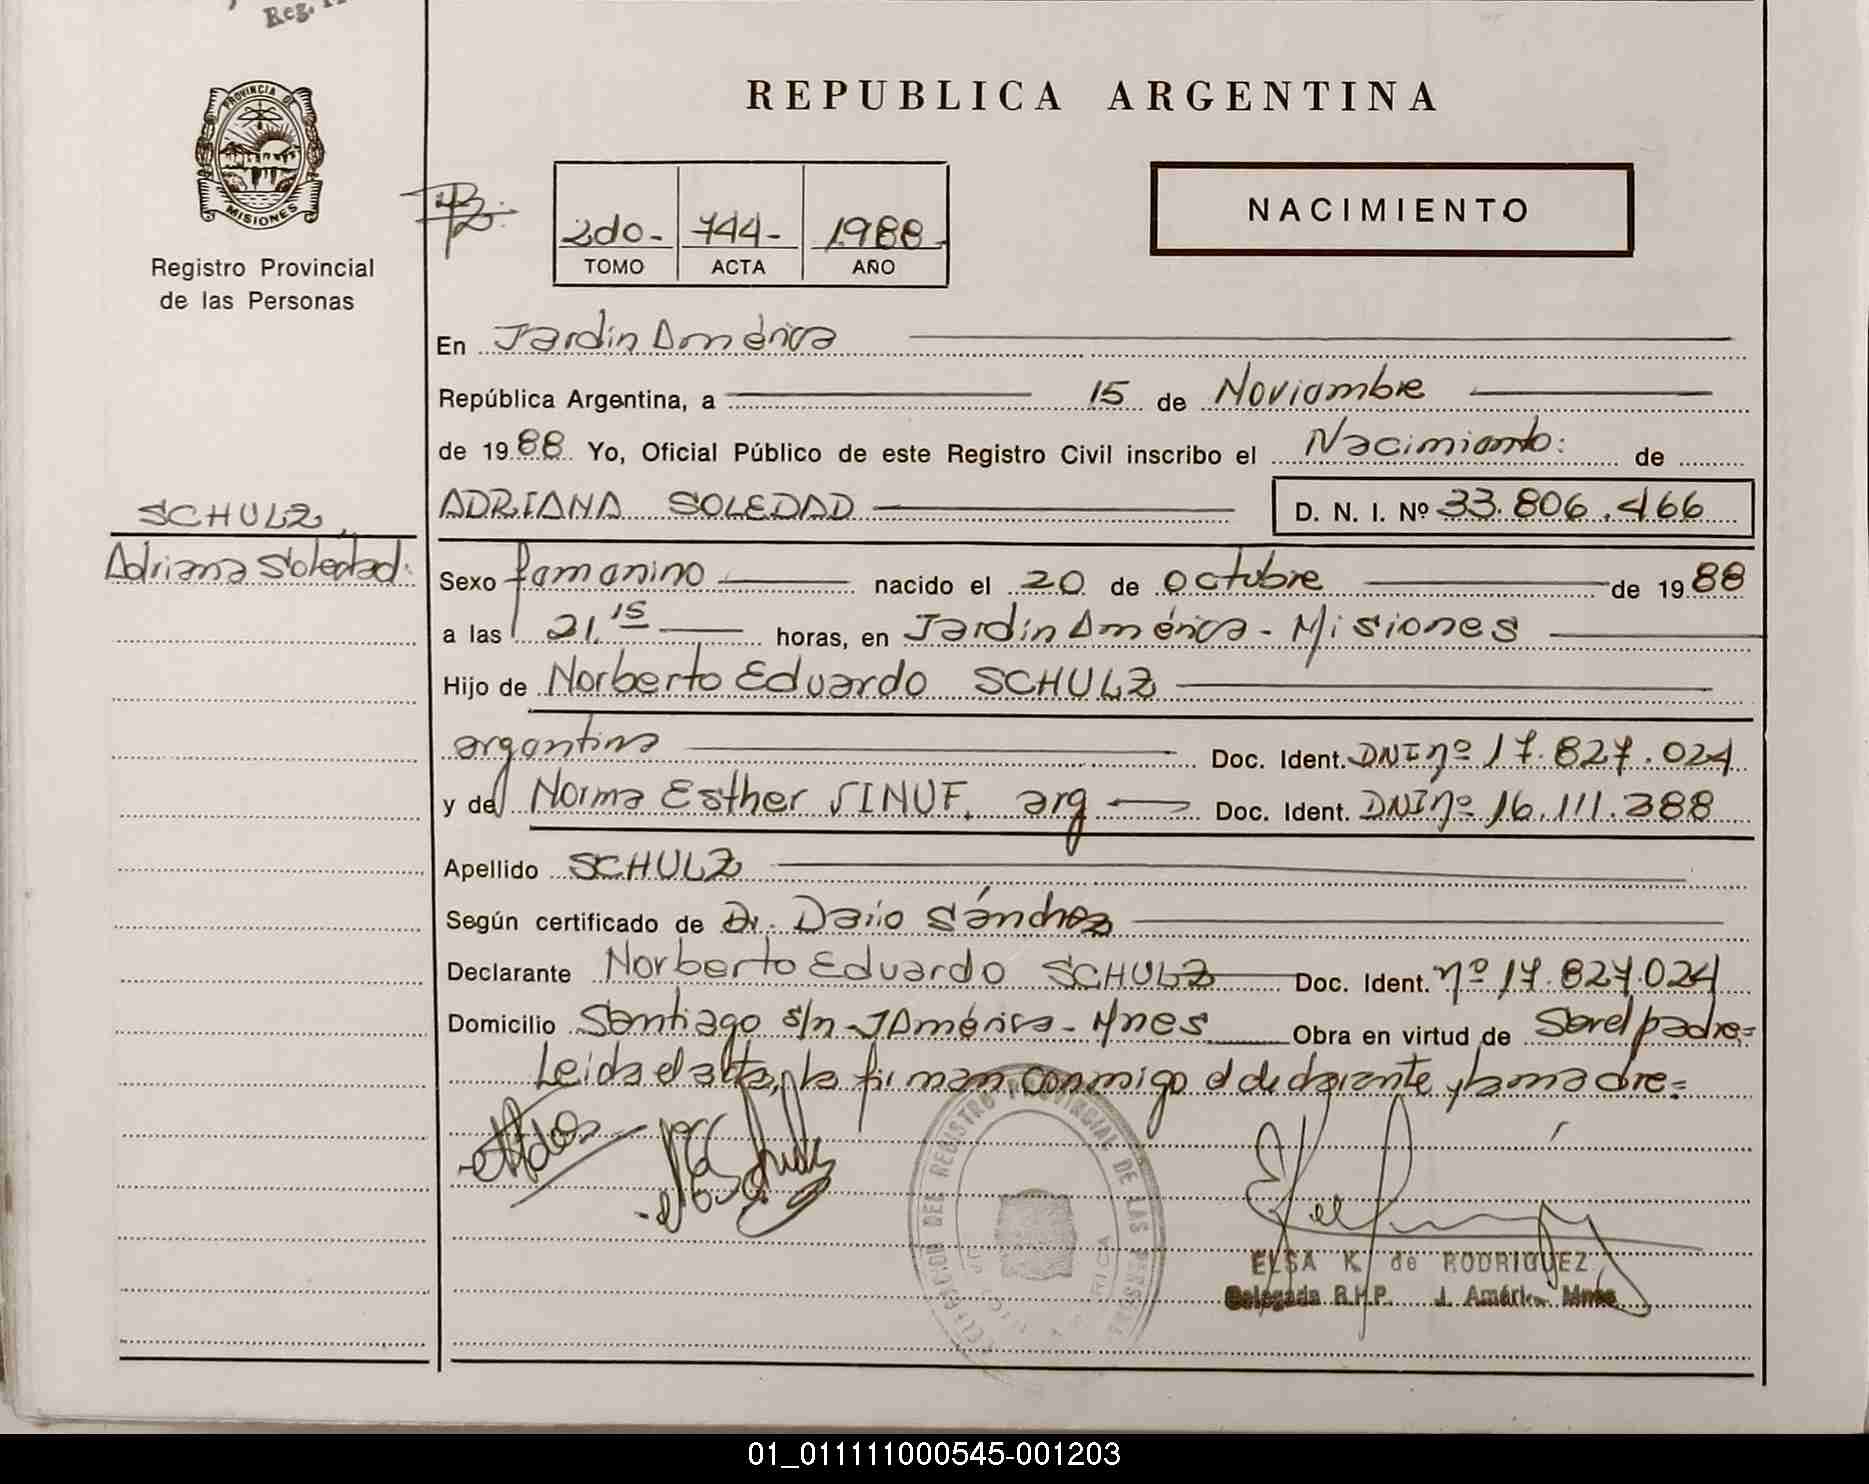 Reg.
REPUBLICA ARGENTINA
PROVINCIA DE
MISIONES
Registro Provincial
de las Personas
2do- 744- 1988
TOMO ACTA AÑO
NACIMIENTO
En Jardín América
República Argentina, a 15 de Noviembre
de 1988 Yo, Oficial Público de este Registro Civil inscribo el Nacimiento: de
SCHULZ,
Adriana Soledad:
ADRIANA SOLEDAD D. N. I. Nº 33.806.466
Sexo femenino nacido el 20 de octubre de 1988
a las 21,15 horas, en Jardín América - Misiones
Hijo de Norberto Eduardo SCHULZ
argentina Doc. Ident. DNI nº 17.827.024
y de Norma Esther SINUF, arg Doc. Ident. DNI nº 16.111.388
Apellido SCHULZ
Según certificado de Dr. Darío Sánchez
Declarante Norberto Eduardo SCHULZ Doc. Ident. nº 17.827.024
Domicilio Santiago s/n - J América - Mnes Obra en virtud de Ser el padre=
Leida el acta, la firman conmigo el declarante y la madre=
DEL REGISTRO PROVINCIAL DE LAS PERSONAS
ELSA K. de RODRIGUEZ
Delegada R.P.P. J. América Mnes
01_011111000545-001203